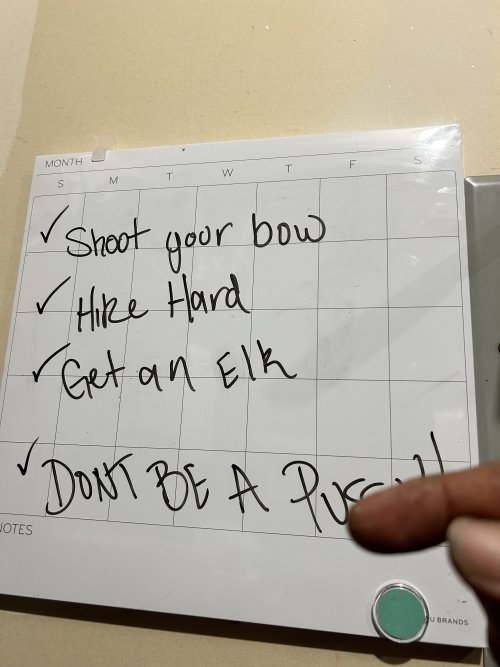 MONTH
S M T W T F S
✓ Shoot your bow
✓ Hike Hard
✓ Get an Elk
✓ DONT BE A
NOTES
U BRANDS